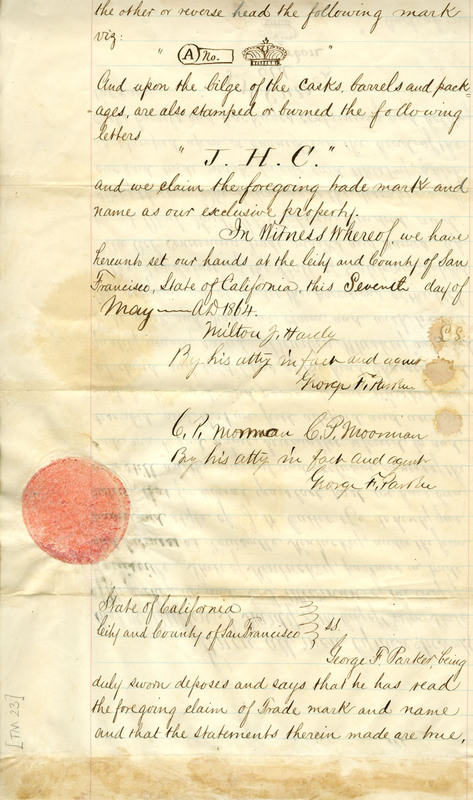 the other or reverse head the following mark
viz:
" A No. "
And upon the bilge of the casks, barrels and pack-
ages, are also stamped or burned the following
letters
" J. H. C. "
and we claim the foregoing trade mark and
name as our exclusive property.
In Witness Whereof, we have
hereunto set our hands at the City and County of San
Francisco, State of California, this Seventh day of
May — AD 1864.
Milton J. Hardy
By his atty in fact and agent
George F. Parker
L.S.
C. P. Morman C. P. Moorman
By his atty in fact and agent
George F. Parker
State of California
City and County of San Francisco } ss
George F. Parker, being
duly sworn deposes and says that he has read
the foregoing claim of Trade mark and name
and that the statements therein made are true.
[TM 23]